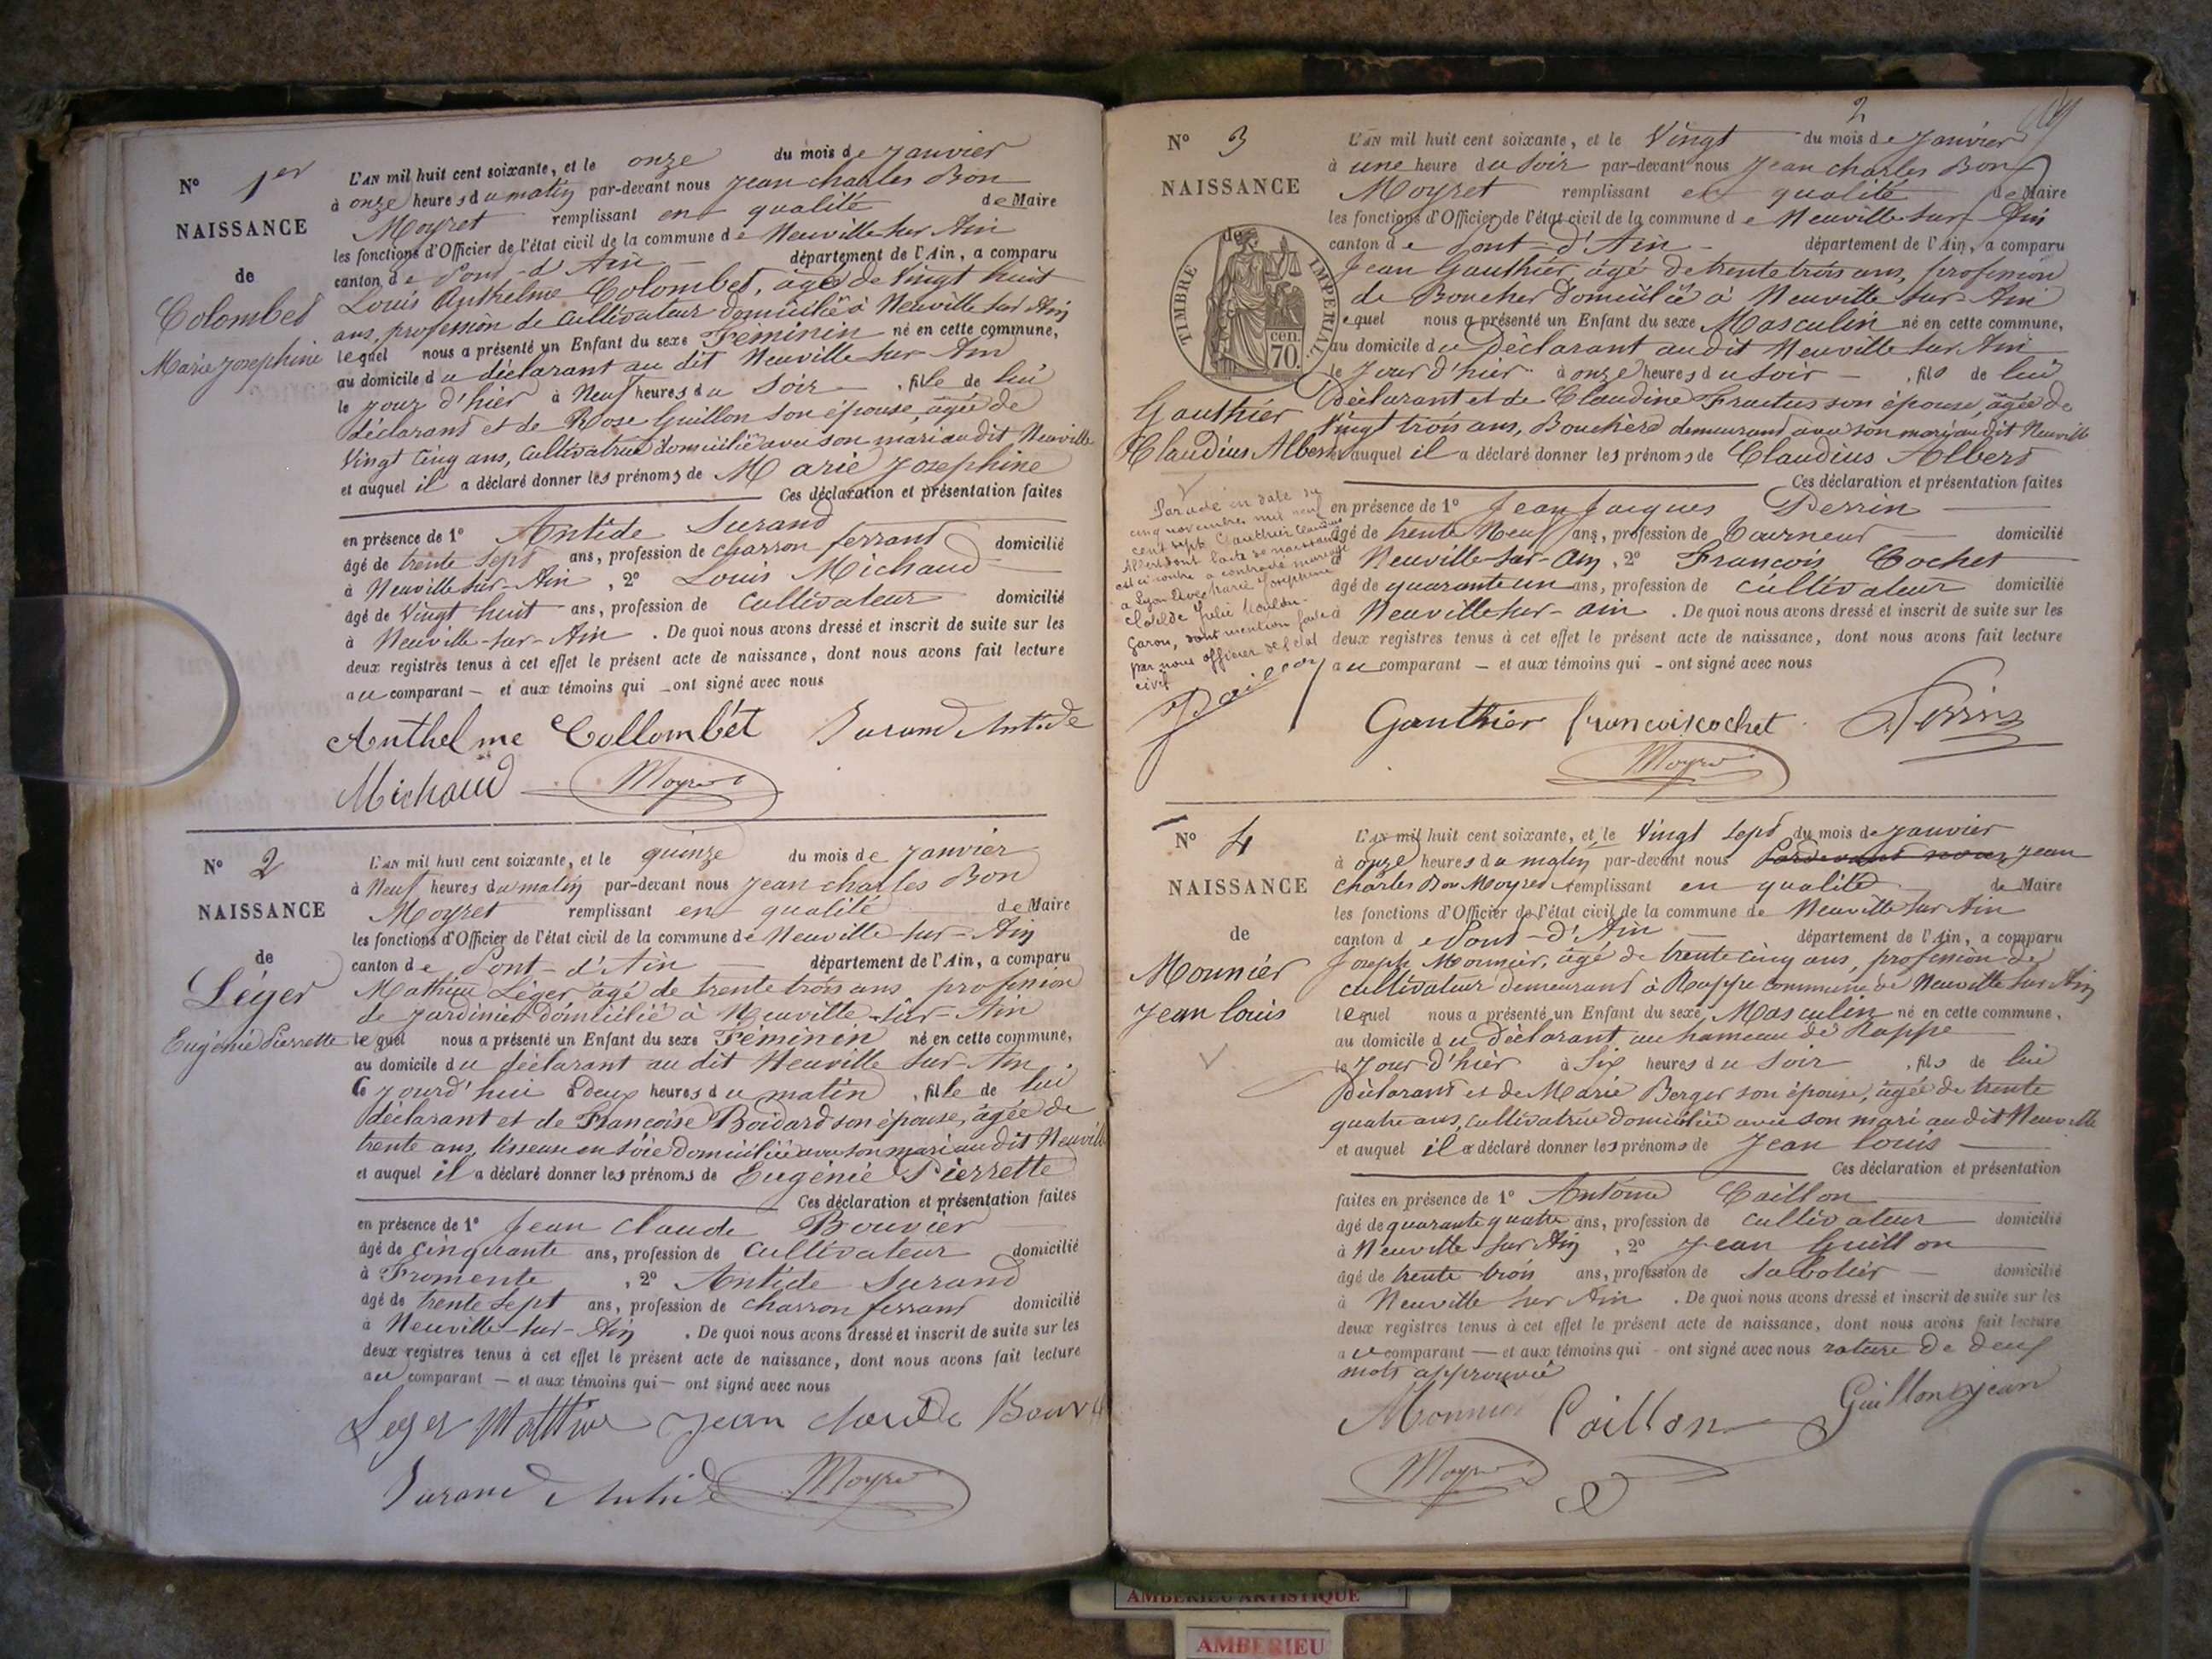 N° 1er
NAISSANCE
de
Colombet
Marie Josephine
L'AN mil huit cent soixante, et le onze du mois de Janvier
à onze heures du matin par-devant nous Jean charles Bon
Moyret remplissant en qualité de Maire
les fonctions d'Officier de l'état civil de la commune de Neuville sur Ain
canton de Pont-d'Ain département de l'Ain, a comparu
Louis Anthelme Colombet, âgé de Vingt huit
ans, profession de Cultivateur domicilié à Neuville sur Ain
lequel nous a présenté un Enfant du sexe Féminin né en cette commune,
au domicile du déclarant au dit Neuville sur Ain
le jour d'hier à Neuf heures du Soir, fille de lui
déclarant et de Rose Guillon son épouse, âgée de
Vingt Cinq ans, Cultivatrice domiciliée avec son mari au dit Neuville
et auquel il a déclaré donner les prénoms de Marie Josephine
Ces déclaration et présentation faites
en présence de 1° Antide Durand
âgé de trente Sept ans, profession de charron ferrant domicilié
à Neuville sur-Ain, 2° Louis Michaud
âgé de Vingt huit ans, profession de Cultivateur domicilié
à Neuville-sur-Ain. De quoi nous avons dressé et inscrit de suite sur les
deux registres tenus à cet effet le présent acte de naissance, dont nous avons fait lecture
au comparant — et aux témoins qui — ont signé avec nous
Anthelme Collombét Durand Antide
Michaud Moyret
N° 2
NAISSANCE
de
Léger
Eugénie Pierrette
L'AN mil huit cent soixante, et le quinze du mois de Janvier
à Neuf heures du matin par-devant nous Jean charles Bon
Moyret remplissant en qualité de Maire
les fonctions d'Officier de l'état civil de la commune de Neuville-sur-Ain
canton de Pont-d'Ain département de l'Ain, a comparu
Mathieu Léger âgé de trente trois ans profession
de Jardinier domicilié à Neuville-sur-Ain
lequel nous a présenté un Enfant du sexe Féminin né en cette commune,
au domicile du déclarant au dit Neuville sur-Ain
Ce jourd'hui à Deux heures du matin, fille de lui
déclarant et de Françoise Boidard son épouse, âgée de
trente ans, tisseuse en soie domiciliée avec son mari au dit Neuville
et auquel il a déclaré donner les prénoms de Eugénie Pierrette
Ces déclaration et présentation faites
en présence de 1° Jean Claude Bouvier
âgé de Cinquante ans, profession de Cultivateur domicilié
à Fromente, 2° Antide Durand
âgé de trente Sept ans, profession de charron ferrant domicilié
à Neuville-sur-Ain. De quoi nous avons dressé et inscrit de suite sur les
deux registres tenus à cet effet le présent acte de naissance, dont nous avons fait lecture
au comparant — et aux témoins qui — ont signé avec nous
Leger Matthieu Jean Claude Bouv
Durand Antide Moyret
2
N° 3
NAISSANCE
de
TIMBRE IMPERIAL
cen.
70.
Gauthier
Claudius Albert
L'AN mil huit cent soixante, et le Vingt du mois de Janvier
à une heure du soir par-devant nous Jean charles Bon
Moyret remplissant en qualité de Maire
les fonctions d'Officier de l'état civil de la commune de Neuville-sur-Ain
canton de Pont-d'Ain département de l'Ain, a comparu
Jean Gauthier, âgé de trente trois ans, profession
de Boucher Domicilié à Neuville sur-Ain
lequel nous a présenté un Enfant du sexe Masculin né en cette commune,
au domicile du Déclarant audit Neuville sur Ain
le Jour d'hier à onze heures du Soir, fils de lui
Déclarant et de Claudine son épouse, âgée de
Vingt trois ans, Bouchère demeurant avec son mari audit Neuville
et auquel il a déclaré donner les prénoms de Claudius Albert
Ces déclaration et présentation faites
Par acte en date du
cinq novembre mil neuf
cent sept Gauthier Claudius
Albert dont l'acte de naissance
est ci contre a contracté mariage
à Lyon avec Marie Josephine
Clotilde Julie
Garon, dont mention faite
par nous officier de l'état
civil
en présence de 1° Jean Jacques Perrin
âgé de trente Neuf ans, profession de Tourneur domicilié
à Neuville-sur-Ain, 2° François Cochet
âgé de quarante un ans, profession de cultivateur domicilié
à Neuville sur-ain. De quoi nous avons dressé et inscrit de suite sur les
deux registres tenus à cet effet le présent acte de naissance, dont nous avons fait lecture
au comparant — et aux témoins qui — ont signé avec nous
Gauthier francois cochet Perrin
Moyret
N° 4
NAISSANCE
de
Mounier
Jean Louis
L'AN mil huit cent soixante, et le Vingt Sept du mois de Janvier
à onze heures du matin par-devant nous Pardevant nous Jean
Charles Bon Moyret remplissant en qualité de Maire
les fonctions d'Officier de l'état civil de la commune de Neuville sur Ain
canton de Pont-d'Ain département de l'Ain, a comparu
Joseph Mounier, âgé de trente cinq ans, profession de
cultivateur demeurant à Rappe commune de Neuville sur Ain
lequel nous a présenté un Enfant du sexe Masculin né en cette commune,
au domicile du Déclarant au hameau de Rappe
le Jour d'hier à Six heures du Soir, fils de lui
Déclarant et de Marie Berger son épouse, âgée de trente
quatre ans, cultivatrice domiciliée avec son mari audit Neuville
et auquel il a déclaré donner les prénoms de Jean Louis
Ces déclaration et présentation
faites en présence de 1° Antoine Caillon
âgé de quarante quatre ans, profession de cultivateur domicilié
à Neuville sur Ain, 2° Jean Guillon
âgé de trente trois ans, profession de Sabotier domicilié
à Neuville sur Ain. De quoi nous avons dressé et inscrit de suite sur les
deux registres tenus à cet effet le présent acte de naissance, dont nous avons fait lecture
au comparant — et aux témoins qui — ont signé avec nous rature de deux
mots approuvée
Monnier Caillon Guillon jean
Moyret
AMBERIEU ARTISTIQUE
AMBERIEU